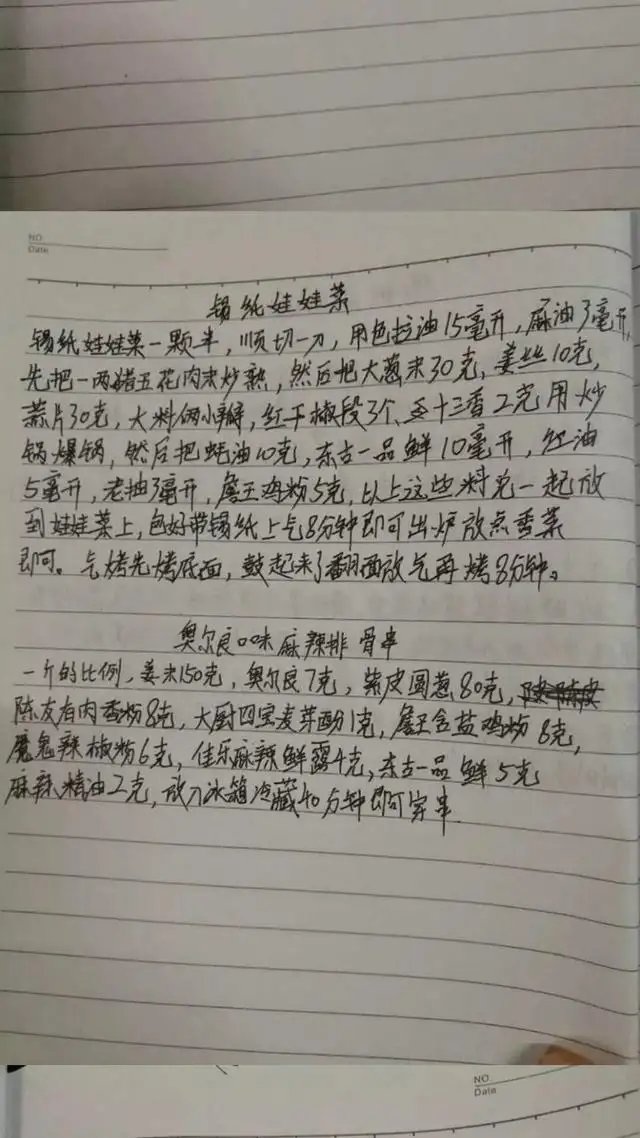 NO.
Date
锡纸娃娃菜
锡纸娃娃菜一颗半，顺切一刀，用色拉油15毫升，麻油3毫升，
先把一两猪五花肉末炒熟，然后把大葱末30克，姜丝10克，
蒜片30克，大料俩小瓣，红干椒段3个、王十三香2克用炒
锅爆锅，然后把蚝油10克，东古一品鲜10毫升，红油
5毫升，老抽3毫升，詹王鸡粉5克，以上这些料兑一起放
到娃娃菜上，包好带锡纸上气8分钟即可出炉放点香菜
即可。气烤先烤底面，鼓起来了翻面放气再烤8分钟。
奥尔良口味麻辣排骨串
一斤的比例，姜末150克，奥尔良7克，紫皮圆葱80克，
陈友存肉香粉8克，大厨四宝麦芽酚1克，詹王含盐鸡粉8克，
魔鬼辣椒粉6克，佳乐麻辣鲜露4克，东古一品鲜5克
麻辣精油2克，放入冰箱冷藏40分钟即可穿串
NO.
Date